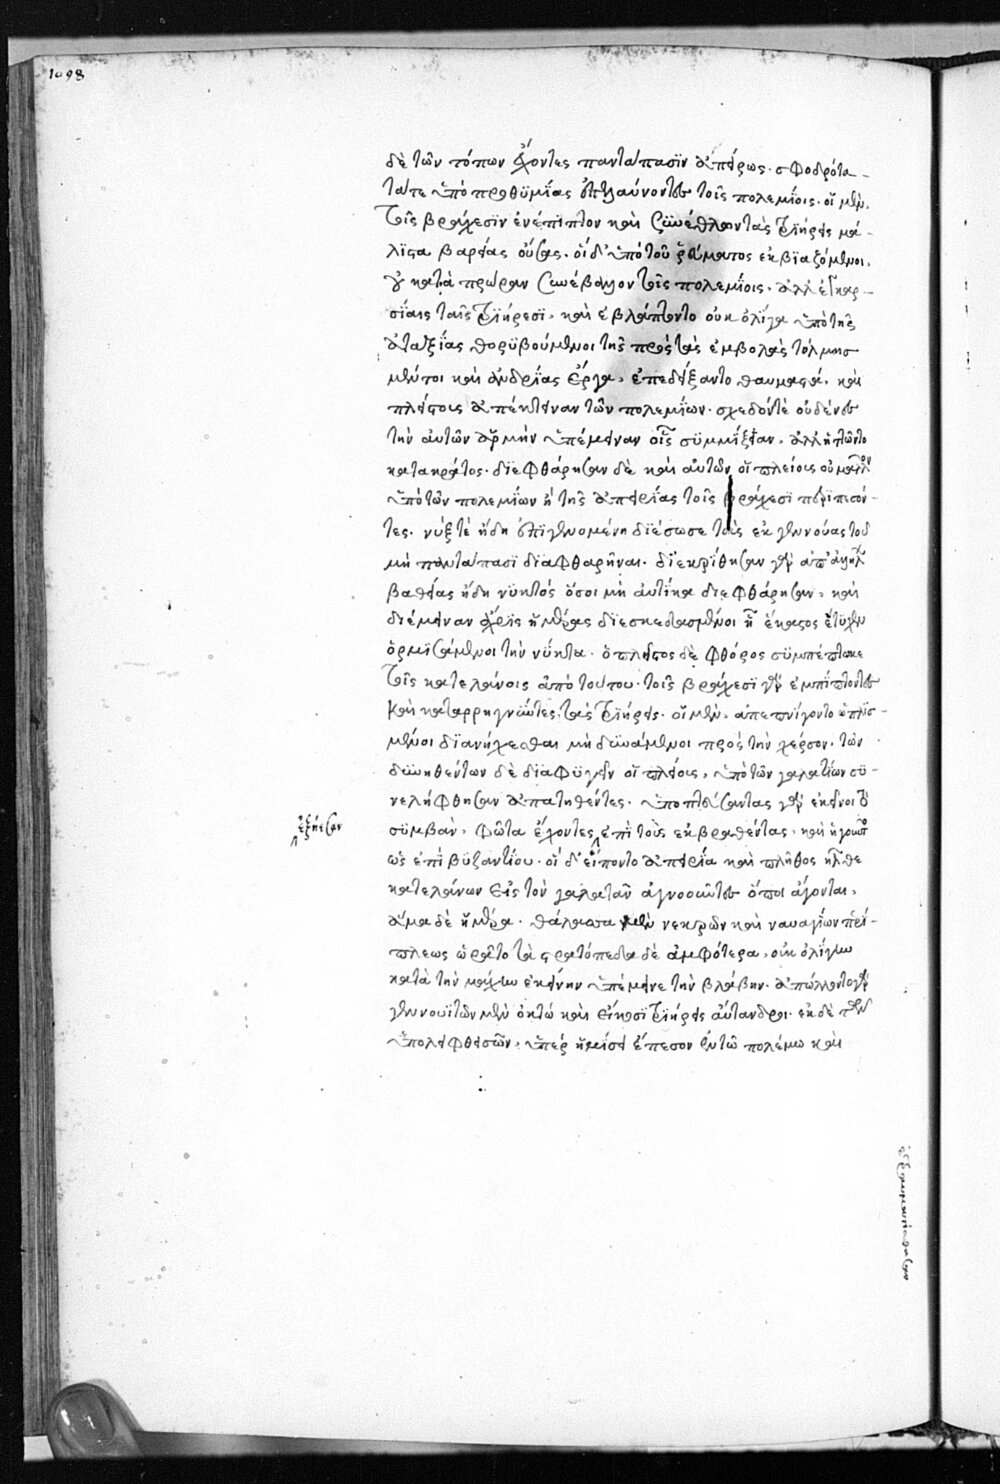 1098
δὲ τῶν τόπων ἔχοντες πανταπασϊν ἀπείρως· σφοδρότα-
τα τε ὑπὸ προθϋμίας ἐπελαύνοντες τοῖς πολεμίοις· οἱ μὲν,
τοῖς βράχεσϊν ἐνέπϊπτον καὶ συνέθλαον τὰς τρϊήρεις μά-
λϊστα βαρείας οὔσας· οἱ δ' ὑπὸ τοῦ ῥεύματος ἐκβϊαζόμενοι,
οὐ κατὰ πρώραν συνέβαλλον τοῖς πολεμίοις, ἀλλ' ἐγκαρ-
σίαις ταῖς τρϊήρεσϊ, καὶ ἐβλάπτοντο οὐκ ὀλίγα ὑπὸ τῆς
ἀταξίας θορϋβούμενοι τῆς πρὸς τὰς ἐμβολὰς τόλμης
μέντοι καὶ ἀνδρείας ἔργα, ἐπεδείξαντο θαυμαστά, καὶ
πλείστοις ἀπέκτειναν τῶν πολεμίων· σχεδόν τὲ οὐδένες
τὴν αὐτῶν ὁρμὴν ὑπέμειναν οἷς σϋμμίξειαν, ἀλλ' ἡττῶντο
κατακράτος· δϊεφθάρησαν δὲ καὶ αὐτῶν οἱ πλείοις οὐ μᾶλλον
ὑπὸ τῶν πολεμίων ἢ τῆς ἀπειρίας τοῖς βράχεσϊ περϊπεσόν-
τες. νύξ τὲ ἤδη ἐπϊγενομένη διέσωσε τοὺς ἐκ γενούας τοῦ
μὴ πανταπασϊ διαφθαρῆναι. δϊεκρίθησαν γὰρ ἀπ' ἀλλήλων
βαθείας ἤδη νϋκτὸς ὅσοι μὴ αὐτίκα διεφθάρησαν, καὶ
διέμειναν ἄχρϊς ἡμέρας δϊεσκεδασμένοι ᾗ ἕκαστος ἔτϋχεν
ὁρμϊσάμενοι τὴν νύκτα. ὁ πλεῖστος δὲ φθόρος σϋμπέπτωκε
τοῖς κατελάνοις ἀπὸ τούτου. τοῖς βράχεσϊ γὰρ ἐμπίπτοντες
καὶ καταρρηγνύντες τὰς τρϊήρεις. οἱ μὲν, ἀπεπνίγοντο ὡπλϊσ-
μένοι δϊανήχεσθαι μὴ δυνάμενοι πρὸς τὴν χέρσον. τῶν
δυνηθέντων δὲ δϊαφϋγεῖν οἱ πλείοις, ὑπὸ τῶν γαλατίων σϋ-
νελήφθησαν ἀπατηθέντες. ὑποπτεύσαντας γὰρ ἐκεῖνοι τὸ
σϋμβὰν, φῶτα ἔχοντες ἐπὶ τοὺς ἐκβραθέντας, καὶ ἡγοῦντο
ἐξῄεσαν
ὡς ἐπὶ βϋζαντίου. οἱ δ' εἵποντο ἀπειρία καὶ πλῆθος ἦλθε
κατελάνων εἰς τὸν γαλατᾶν ἀγνοοῦντες ὅποι ἄγονται,
ἅμα δὲ ἡμέρα. θάλασσα μὲν νεκρῶν καὶ ναυαγίων περί-
πλεως ὡρᾶτο τὰ στρατόπεδα δὲ ἀμφότερα, οὐκ ὀλίγην
κατὰ τὴν μάχην ἐκείνην ὑπέμεινε τὴν βλάβην. ἀπώλλοντο γὰρ
γενουϊτῶν μὲν ὀκτώ καὶ εἴκοσϊ τρϊήρεις αὔτανδροι. ἐκ δὲ τῶν
ὑπολειφθεισῶν, ὑπὲρ ἡμίσεις ἔπεσον ἐν τῶ πολέμω καὶ